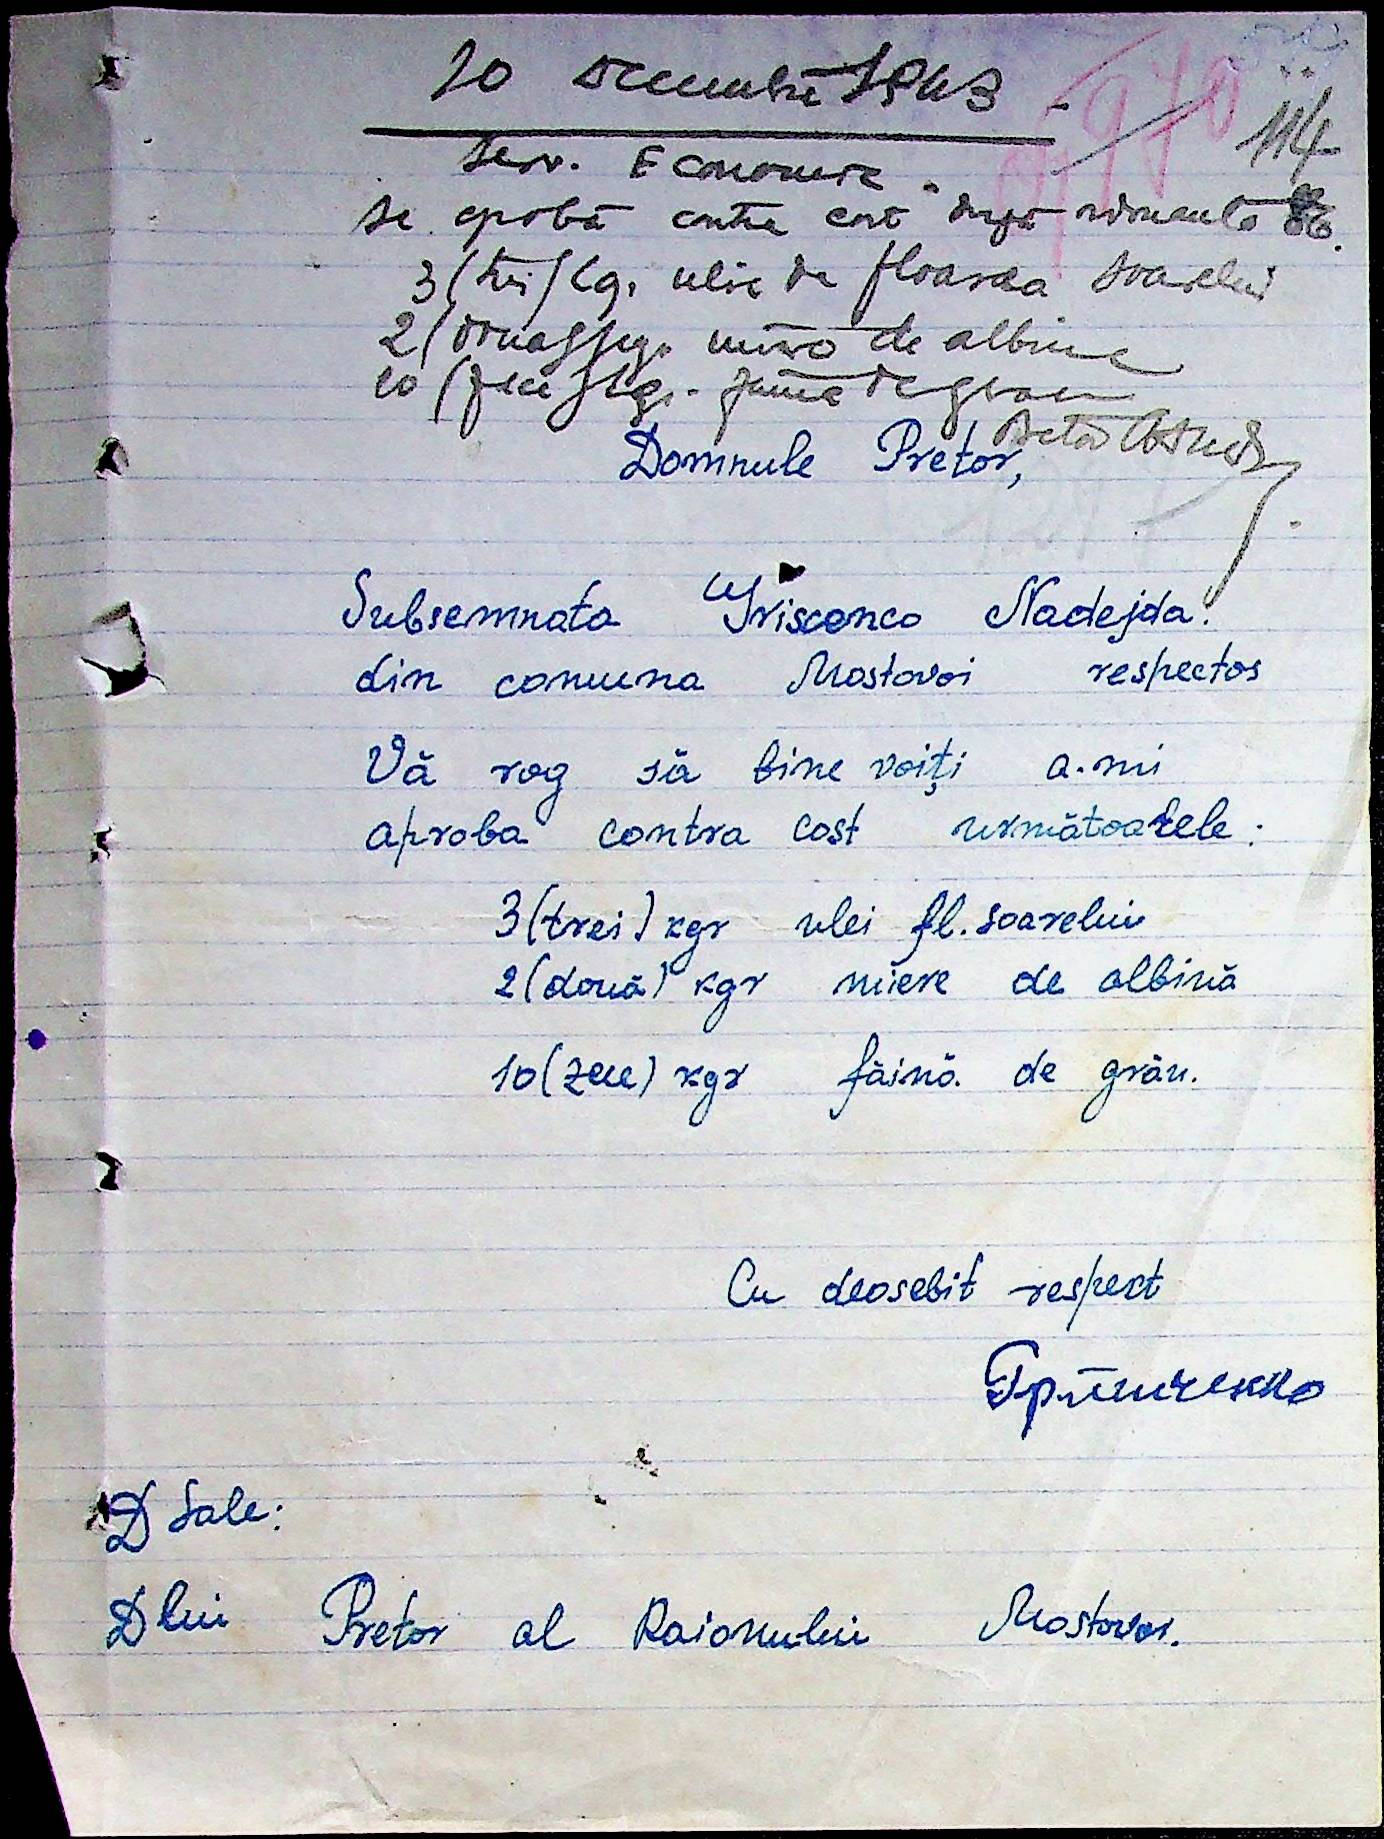 20 Decembrie 1943
114
Serv. Economic.
Se aprobă contra cost după
3 (trei) kg. ulei de floarea soarelui
2 (două) kg. miere de albine
10 (zece) kg. făină de grâu
Domnule Pretor,
Subsemnata Griscenco Nadejda.
din comuna Mostovoi respectos
Vă rog să bine voiți a-mi
aproba contra cost următoarele:
3 (trei) kgr ulei fl. soarelui
2 (două) kgr miere de albină
10 (zece) kgr făină de grău.
Cu deosebit respect
Гришченко
D Sale:
Dlui Pretor al Raionului Mostovoi.